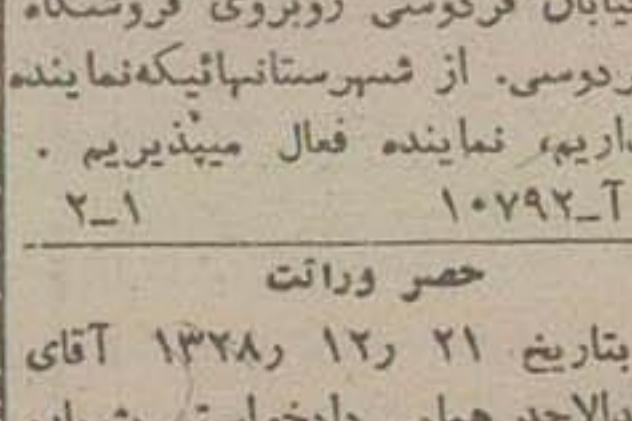 خیابان فردوسی روبروی فروشگاه
فردوسی. از شهرستانهائیکه نماینده
داریم، نماینده فعال میپذیریم .
آ_۱۰۷۹۲ ۱_۲
حصر وراثت
بتاریخ ۲۱ ر۱۲ ر۱۳۲۸ آقای
دادخواست